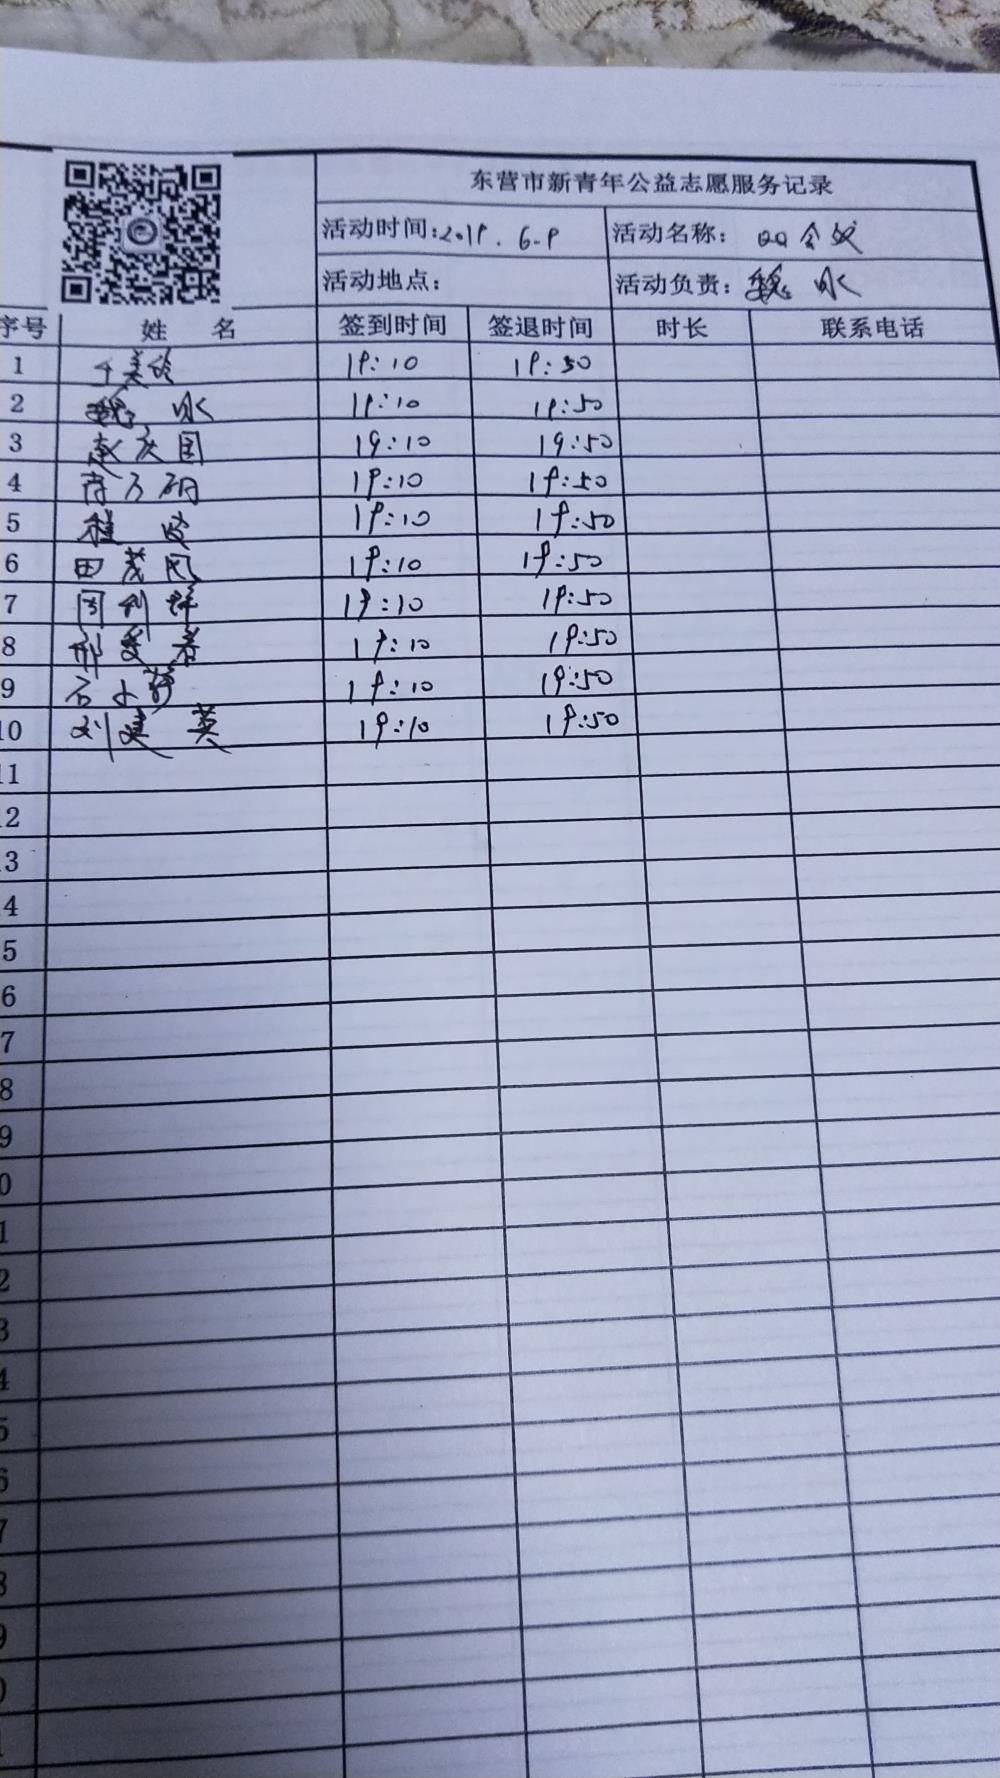 东营市新青年公益志愿服务记录
活动时间:2019.6.9 活动名称: QQ会议
活动地点: 活动负责: 魏 冰
序号 姓 名 签到时间 签退时间 时长 联系电话
1 王美玲 19:10 19:50
2 魏 冰 19:10 19:50
3 赵庆国 19:10 19:50
4 19:10 19:50
5 程 19:10 19:50
6 田茂凤 19:10 19:50
7 周利群 19:10 19:50
8 邢爱春 19:10 19:50
9 石小静 19:10 19:50
10 刘建英 19:10 19:50
11
12
13
4
5
6
7
8
9
0
1
2
3
4
5
6
7
8
9
0
1